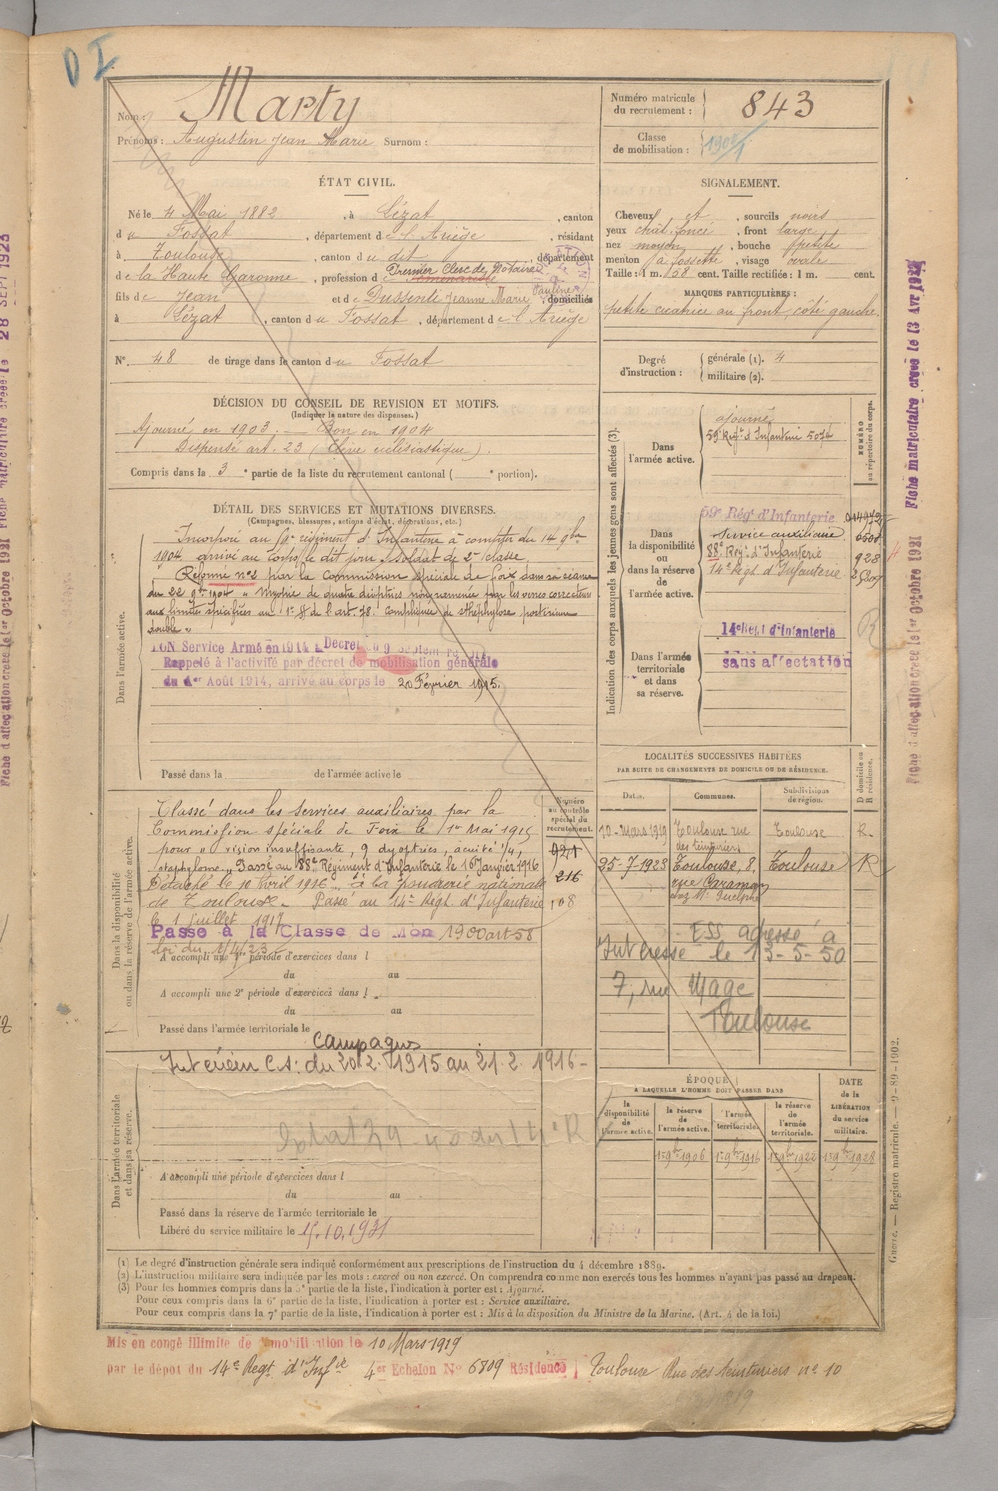 D I
Nom : Marty
Prénoms : Augustin Jean Marie Surnom :
Numéro matricule du recrutement : 843
Classe de mobilisation :
ÉTAT CIVIL.
Né le 4 Mai 1882, à Lézat, canton
du Fossat, département de l'Ariège, résidant
à Toulouse, canton du dit, département
de la Haute Garonne, profession de Premier Clerc de Notaire
fils de Jean et de Dussenti Jeanne Marie Pauline, domiciliés
à Lézat, canton du Fossat, département de l'Ariège
N° 48 de tirage dans le canton du Fossat
SIGNALEMENT.
Cheveux et, sourcils noirs
yeux chât. foncé, front large
nez moyen, bouche petite
menton à fossette, visage ovale
Taille : 1 m. 68 cent. Taille rectifiée : 1 m. cent.
MARQUES PARTICULIÈRES :
petite cicatrice au front, côté gauche.
Degré d'instruction : générale (1). 4
militaire (2).
DÉCISION DU CONSEIL DE REVISION ET MOTIFS.
(Indiquer la nature des dispenses.)
Ajourné en 1903. — Bon en 1904
Dispensé art. 23 (Élève ecclésiastique).
Compris dans la 3e partie de la liste du recrutement cantonal ( e portion).
DÉTAIL DES SERVICES ET MUTATIONS DIVERSES.
(Campagnes, blessures, actions d'éclat, décorations, etc.)
Dans l'armée active.
Incorporé au 59e régiment d'Infanterie à compter du 14 9bre
1904 arrivé au corps le dit jour, soldat de 2e classe.
Réformé n°2 par la Commission spéciale de Foix dans sa séance
du 22 9bre 1904 "Myopie de quatre dioptries non ramenée par les verres correcteurs
aux limites spécifiées au 1er § de l'art. 78. compliquée de staphylose postérieur
double"
BON Service Armé en 1914 Décret du 9 Septembre 1914
Rappelé à l'activité par décret de mobilisation générale
du 1er Août 1914, arrivé au corps le 20 Février 1915.
Passé dans la de l'armée active le
Indication des corps auxquels les jeunes gens sont affectés (3).
NUMÉRO au répertoire du corps.
Dans l'armée active.
ajourné
59e Régt d'Infanterie 5074
Dans la disponibilité ou dans la réserve de l'armée active.
59e Régt d'Infanterie
service auxiliaire
88e Regt d'Infanterie 928
14e Régt d'Infanterie
Dans l'armée territoriale et dans sa réserve.
14e Regt d'Infanterie
sans affectation
R
LOCALITÉS SUCCESSIVES HABITÉES
PAR SUITE DE CHANGEMENTS DE DOMICILE OU DE RÉSIDENCE.
Dates. Communes. Subdivisions de région. D domicile ou R résidence.
10 - Mars 1919 Toulouse rue des teinturiers Toulouse R
25-7-1923 Toulouse, 8, rue Caraman Toulouse R
ESS adressé à
Intéressé le 13-5-50
7, rue Mage
Toulouse
Dans la disponibilité ou dans la réserve de l'armée active.
Numéro au contrôle spécial du recrutement.
Classé dans les services auxiliaires par la
Commission spéciale de Foix le 1er Mai 1915
pour "vision insuffisante, 9 dyoptries, acuité 1/4,
staphylome". Passé au 88e Régiment d'Infanterie le 16 Janvier 1916
Détaché le 10 Avril 1916 à la poudrerie nationale
de Toulouse. Passé au 14e Régt. d'Infanterie
le 1 Juillet 1917
921
216
108
Passe à la Classe de Mon 1900 art 58
loi du 1/4/23
A accompli une 1re période d'exercices dans l
du au
A accompli une 2e période d'exercices dans l
du au
Passé dans l'armée territoriale le
Dans l'armée territoriale et dans sa réserve.
Campagnes
Intérieur C.S. du 20.2.1915 au 21.2.1916 -
A accompli une période d'exercices dans l
du au
Passé dans la réserve de l'armée territoriale le
Libéré du service militaire le 15.10.1931
ÉPOQUE À LAQUELLE L'HOMME DOIT PASSER DANS
la disponibilité de l'armée active. la réserve de l'armée active. l'armée territoriale. la réserve de l'armée territoriale. DATE de la LIBÉRATION du service militaire.
1er 9bre 1906 1er 9bre 1916 1er 9bre 1922 1er 9bre 1928
(1) Le degré d'instruction générale sera indiqué conformément aux prescriptions de l'instruction du 4 décembre 1889.
(2) L'instruction militaire sera indiquée par les mots : exercé ou non exercé. On comprendra comme non exercés tous les hommes n'ayant pas passé au drapeau.
(3) Pour les hommes compris dans la 3e partie de la liste, l'indication à porter est : Ajourné.
Pour ceux compris dans la 6e partie de la liste, l'indication à porter est : Service auxiliaire.
Pour ceux compris dans la 7e partie de la liste, l'indication à porter est : Mis à la disposition du Ministre de la Marine. (Art. 4 de la loi.)
Mis en congé illimité de démobilisation le 10 Mars 1919
par le dépôt du 14e Regt d'Infie 4e Echelon N° 6809 Résidence Toulouse Rue des teinturiers n° 10
Guerre. — Registre matricule. — 9-89-1902.
Fiche matriculaire créée le 13 Avr 1932
Fiche d'affectation créée le 1er Octobre 1931